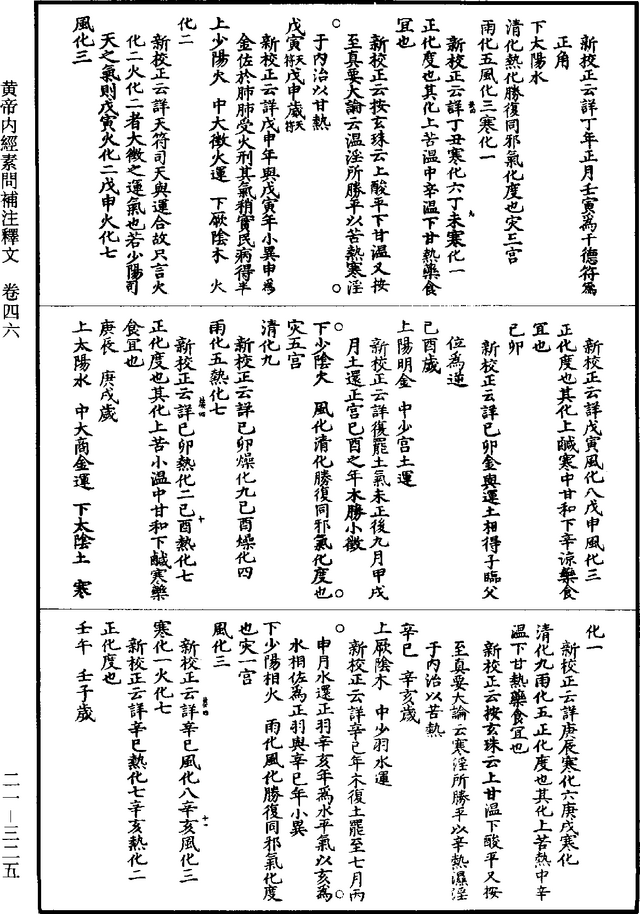 黃帝內經素問補注釋文　卷四六
二一—三二五
新校正云詳丁年正月壬寅爲干德符爲
正角
下太陽水
清化熱化勝復同邪氣化度也灾三宫
雨化五風化三寒化一
新校正云詳丁丑寒化六丁未寒化一
正化度也其化上苦溫中辛溫下甘熱藥食
宜也
新校正云按玄珠云上酸平下甘溫又按
至真要大論云溼淫所勝平以苦熱寒淫
于內治以甘熱
戊寅天符戊申歲天符
新校正云詳戊申年與戊寅年小異申爲
金佐於肺肺受火刑其氣稍實民病得半
上少陽火　中大徵火運　下厥陰木　火
化二
新校正云詳天符司天與運合故只言火
化二火化二者大徵之運氣也若少陽司
天之氣則戊寅火化二戊申火化七
風化三
新校正云詳戊寅風化八戊申風化三
正化度也其化上鹹寒中甘和下辛涼藥食
宜也
己卯
新校正云詳己卯金與運土相得子臨父
位爲逆
己酉歲
上陽明金　中少宮土運
新校正云詳復罷土氣未正後九月甲戌
月土還正宮己酉之年木勝小徵
下少陰火　風化清化勝復同邪氣化度也
灾五宮
清化九
新校正云詳己卯燥化九己酉燥化四
雨化五熱化七
新校正云詳己卯熱化二己酉熱化七
正化度也其化上苦小溫中甘和下鹹寒藥
食宜也
庚辰　庚戌歲
上太陽水　中大商金運　下太陰土　寒
化一
新校正云詳庚辰寒化六庚戌寒化
清化九雨化五正化度也其化上苦熱中辛
溫下甘熱藥食宜也
新校正云按玄珠云上甘溫下酸平又按
至真要大論云寒淫所勝平以辛熱濕淫
于內治以苦熱
辛巳　辛亥歲
上厥陰木　中少羽水運
新校正云詳辛巳年木復土罷至七月丙
申月水還正羽辛亥年爲水平氣以亥爲
水相佐爲正羽與辛巳年小異
下少陽相火　雨化風化勝復同邪氣化度
也灾一宮
風化三
新校正云詳辛巳風化八辛亥風化三
寒化一火化七
新校正云詳辛巳熱化七辛亥熱化二
正化度也
壬午　壬子歲